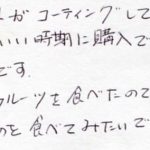 がコーティングして
いい時期に購入で
です.
フルーツを食べたので
のと食べてみたいで